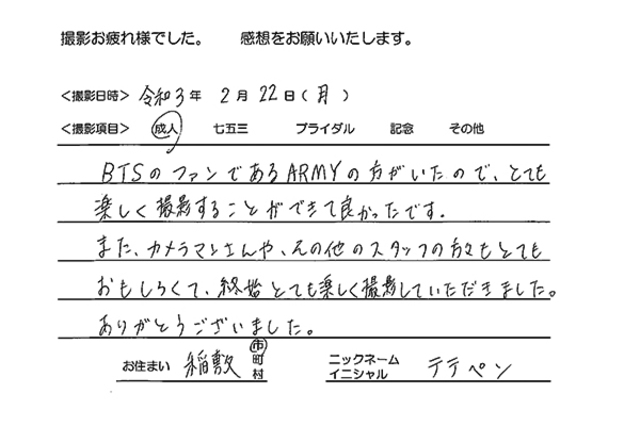 撮影お疲れ様でした。 感想をお願いいたします。
<撮影日時> 令和3年 2月 22日(月)
<撮影項目> 成人 七五三 ブライダル 記念 その他
BTSのファンであるARMYの方がいたので、とても
楽しく撮影することができて良かったです。
また、カメラマンさんや、その他のスタッフの方々もとても
おもしろくて、終始とても楽しく撮影していただきました。
ありがとうございました。
お住まい 稲敷 市町村 ニックネーム イニシャル テテペン